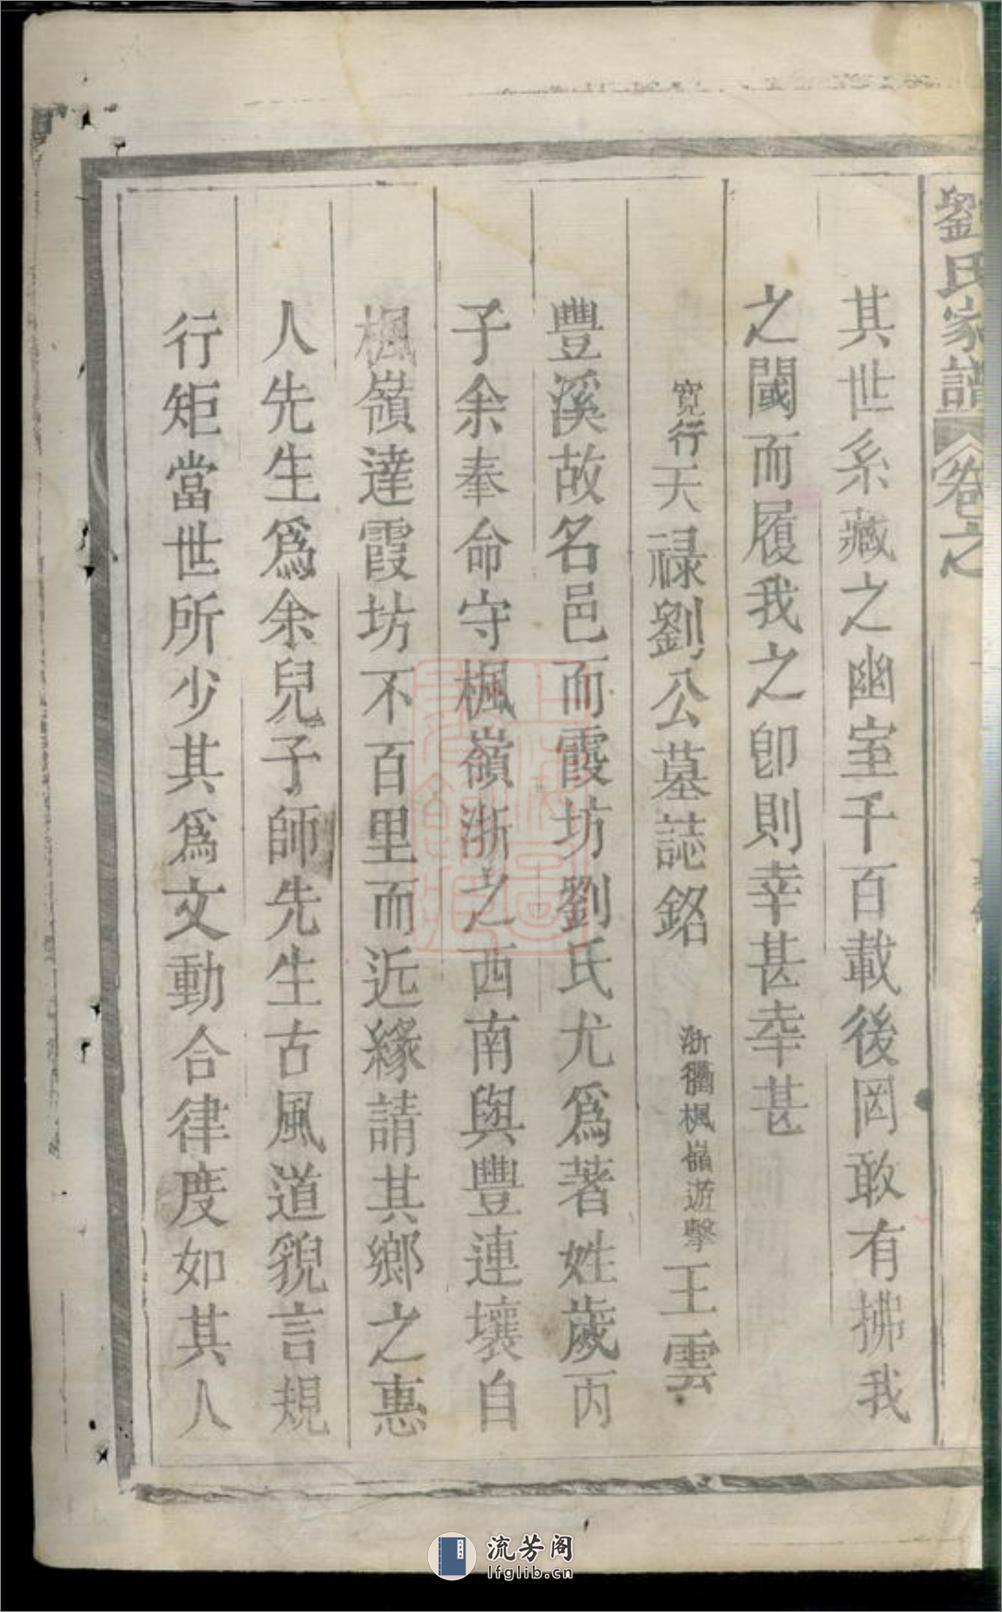 劉氏家譜 卷之
其世系藏之幽室千百載後罔敢有拂我
之閾而履我之卽則幸甚幸甚
寬行天禄劉公墓誌銘 浙衢楓嶺遊擊王雲
豐溪故名邑而霞坊劉氏尤爲著姓歲丙
子余奉命守楓嶺浙之西南與豐連壤自
楓嶺達霞坊不百里而近緣請其鄉之惠
人先生爲余兒子師先生古風道貌言規
行矩當世所少其爲文動合律度如其人
流芳阁
lfglib.cn